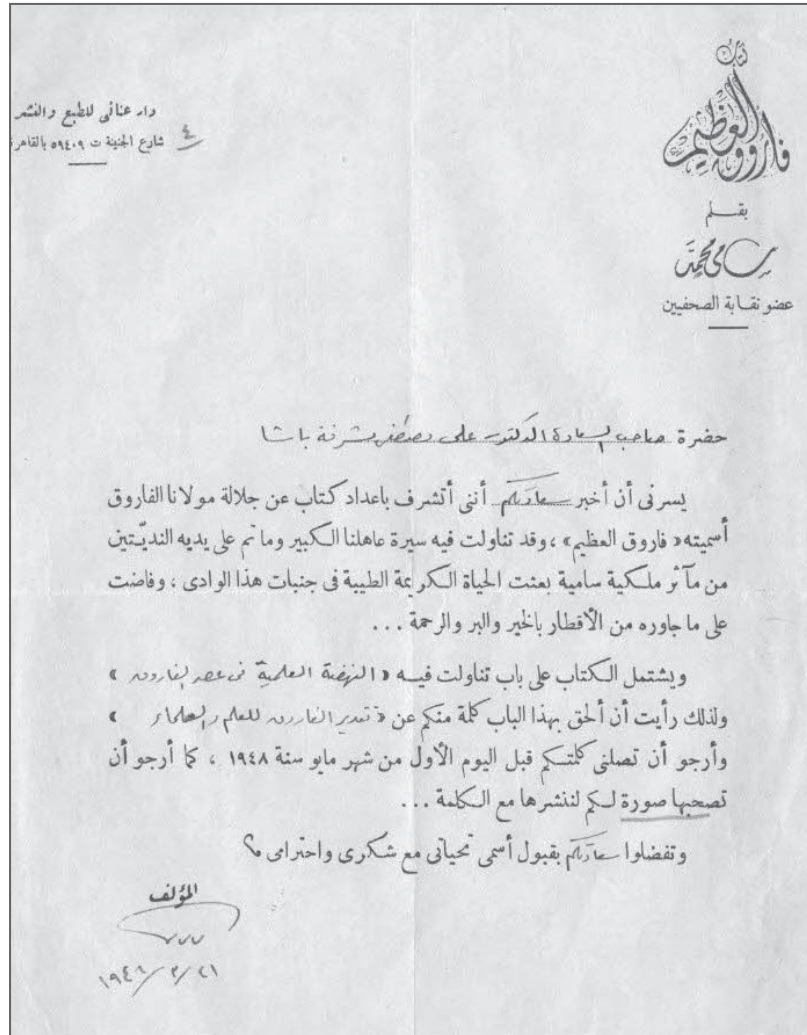 كتاب
فاروق العظيم
بقلم
سامى محمد
عضو نقابة الصحفيين
دار عنانى للطبع والنشر
٤ شارع الجنينة ت ٥٩٤٠٩ بالقاهرة
حضرة صاحب السعادة الدكتور على مصطفى مشرفة باشا
يسرنى أن أخبر سعادتكم أننى أتشرف باعداد كتاب عن جلالة مولانا الفاروق
أسميته « فاروق العظيم » ، وقد تناولت فيه سيرة عاهلنا الكبير وما تم على يديه النديّتين
من مآثر ملكية سامية بعثت الحياة الكريمة الطيبة فى جنبات هذا الوادى ، وفاضت
على ما جاوره من الأقطار بالخير والبر والرحمة ...
ويشتمل الكتاب على باب تناولت فيه « النهضة العلمية فى عصر الفاروق »
ولذلك رأيت أن ألحق بهذا الباب كلمة منكم عن « تقدير الفاروق للعلم والعلماء »
وأرجو أن تصلنى كلمتكم قبل اليوم الأول من شهر مايو سنة ١٩٤٨ ، كما أرجو أن
تصحبها صورة لكم لننشرها مع الكلمة ...
وتفضلوا سعادتكم بقبول أسمى تحياتى مع شكرى واحترامى
المؤلف